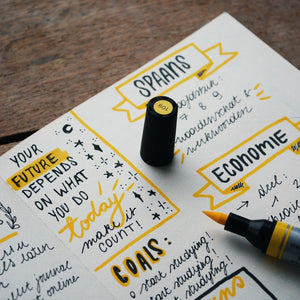 SPAANS
hoofdstuk:
7 8 9
woordenschat &
werkwoorden
YOUR
FUTURE
DEPENDS
ON WHAT
YOU DO
today
make it
COUNT!
ECONOMIE
deel:
GOALS:
start studying
start studying
studying!
later
journal
online